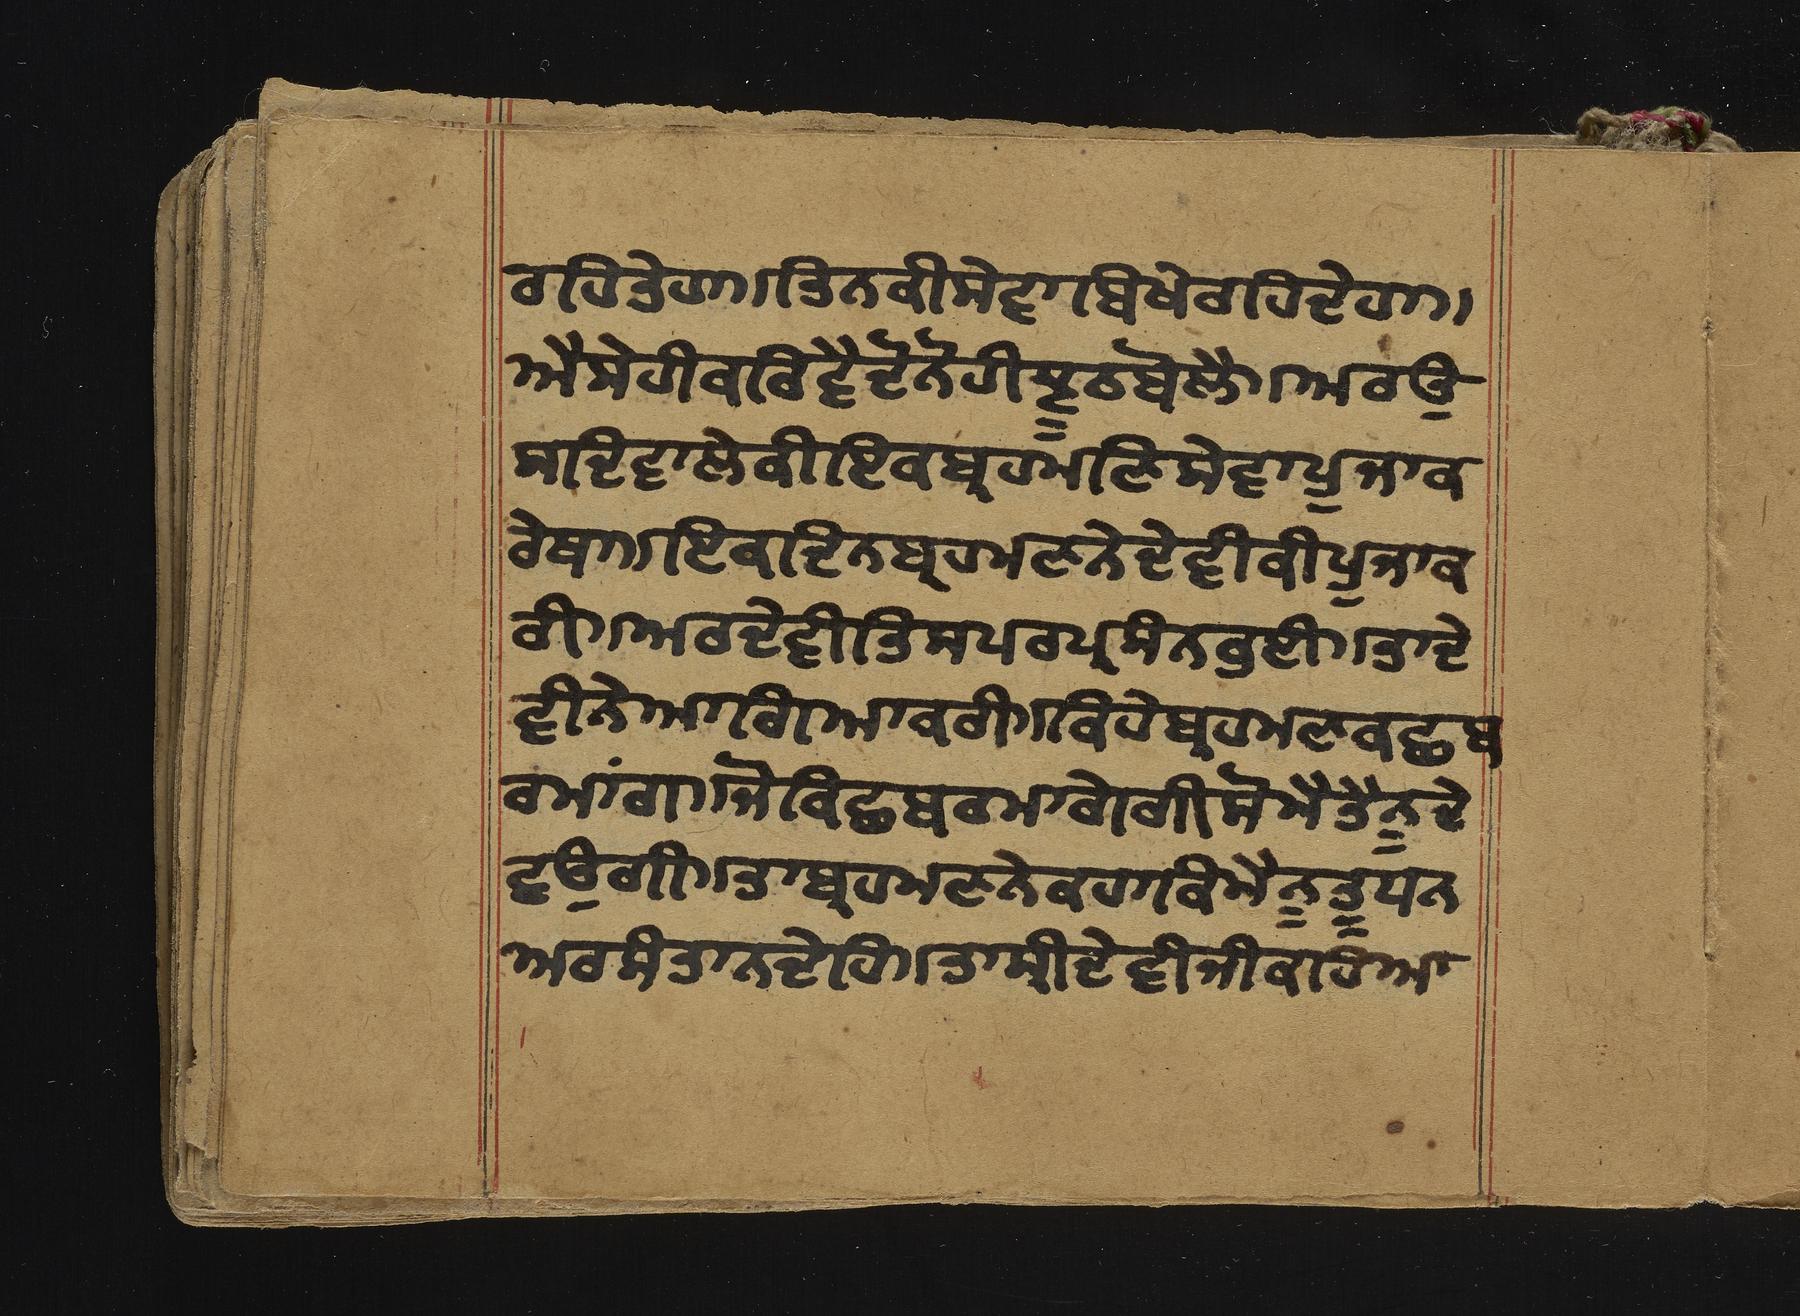 ਰਹਿਤੇਹਾ।ਤਿਨਕੀਸੇਵਾਬਿਖੇਰਹਿਦੇਹਾ।
ਐਸੇਹੀਕਰਿਵੈਦੋਨੋਹੀਝੂਠਬੋਲੈ।ਅਰਉ
ਸਦਿਵਾਲੇਕੀਇਕਬ੍ਰਹਮਣਿਸੇਵਾਪੁਜਾਕ
ਰੇਥਾ।ਇਕਦਿਨਬ੍ਰਹਮਣਨੇਦੇਵੀਕੀਪੁਜਾਕ
ਰੀ।ਅਰਦੇਵੀਤਿਸਪਰਪ੍ਰਸੰਨਹੁਈ।ਤਾਦੇ
ਵੀਨੇਆਗਿਆਕਰੀ।ਕਿਹੇਬ੍ਰਹਮਣਕਛੁਬ
ਰਮਾਂਗ।ਜੋਕਿਛੁਬਰਮਾਗੇਗੀਸੋਮੈਤੈਨੂਦੇ
ਵਉਗੀ।ਤਾਬ੍ਰਹਮਣਨੇਕਹਾਕਿਮੈਨੂਤੂਧਨ
ਅਰਸੰਤਾਨਦੇਹਿ।ਤਾਸ੍ਰੀਦੇਵੀਜੀਕਹਿਆ